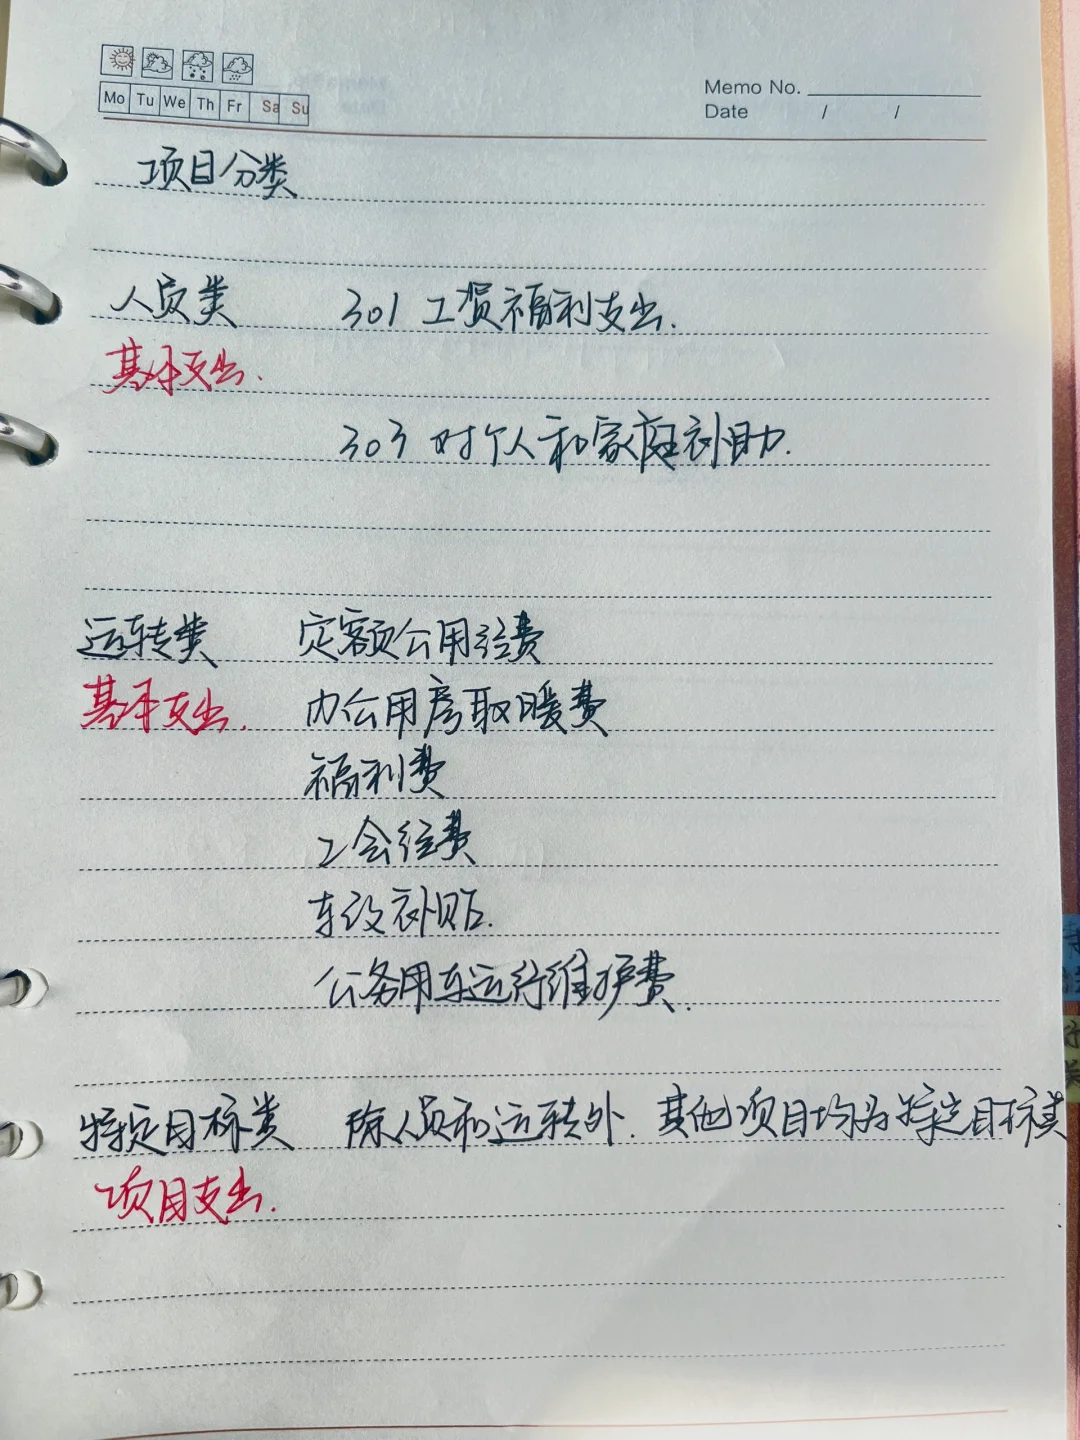 Mo Tu We Th Fr Sa Su
Memo No.
Date / /
项目分类
人员类 301 工资福利支出.
基本支出.
303 对个人和家庭补助.
运转类 定额公用经费
基本支出. 办公用房取暖费
福利费
工会经费
车改补贴.
公务用车运行维护费.
特定目标类 除人员和运转外. 其他项目均为特定目标类
项目支出.